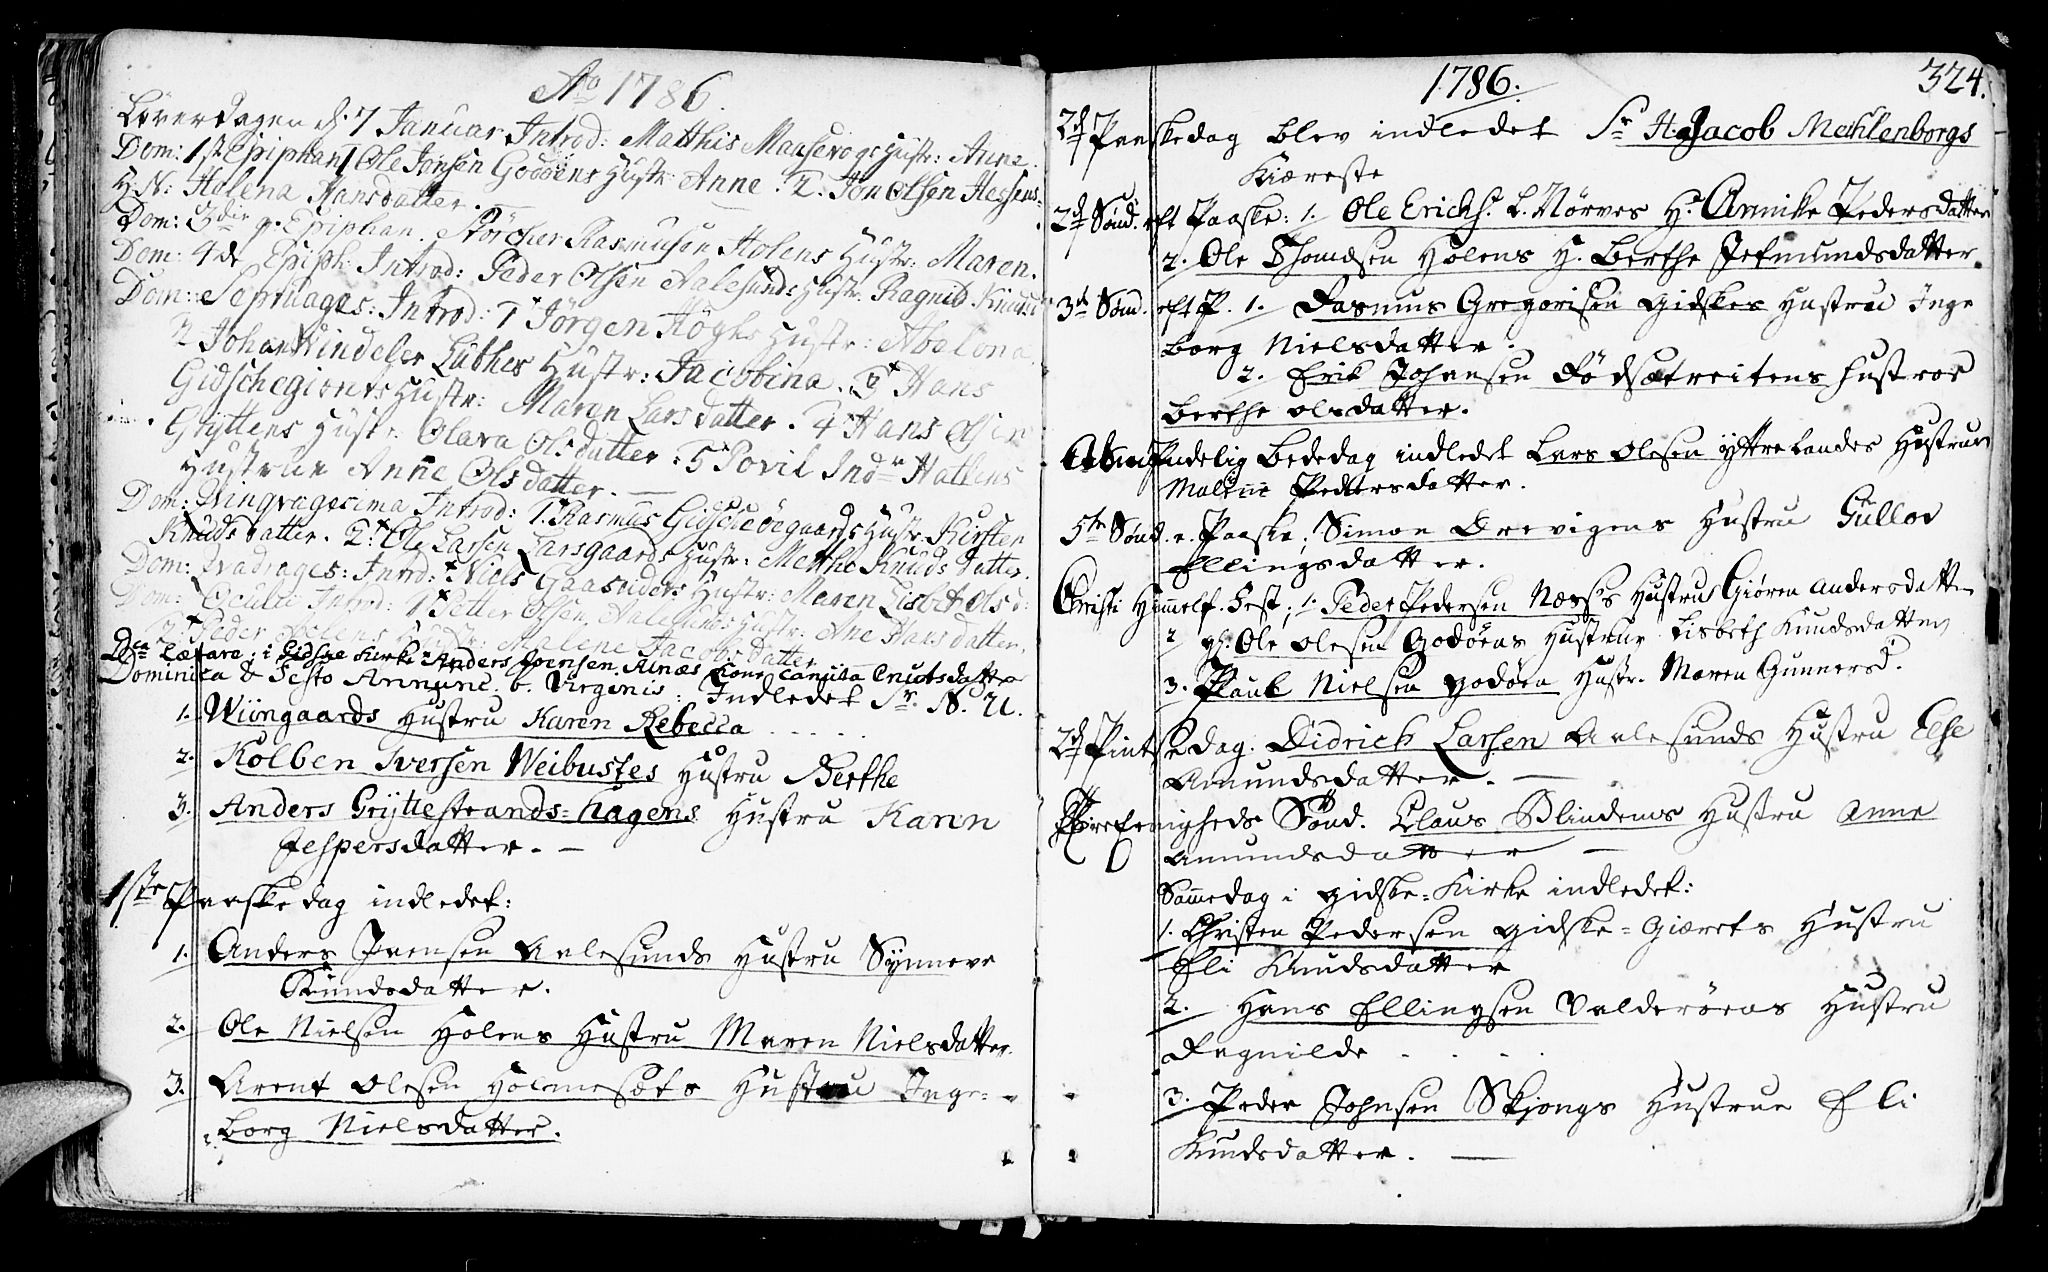 Ao 1786.
Löverdagen d. 7 Januar Introd: Matthis Mansevogs Hustr: Anne.
Dom: 1st Epiphan 1 Ole Jonsen Godöens Hustr Anne. 2. Jon Olsen Hessens
H. N: Halena Hansdatter.
Dom: 3die p. Epiphan. Störcher Rasmusen Holens Hustr: Maren.
Dom: 4de Epiph: Introd: Peder Olsen Aalesunds Hustr. Ragnild Knudsd
Dom: Septuages: Introd: 1 Jörgen Höghs Hustr: Abelona
2 Johan Windeler Lüthes Hustr: Jacobina. 3 Hans
Gidschegiorts Hustr: Maren Larsdatter. 4 Hans Olsen
Gryttens Hustr Olava Olsdatter. 5 Povil Indr Hatlens
Hustrue Anne Olsdatter. —
Dom: Qvinqvagesima Introd: 1. Rasmus Gidscheöegaards Hustr. Kirsten
Knudsdatter. 2. Ole Larsen Larsgaards Hustr: Merthe Knudsdatter.
Dom: Qvadrages: Introd: Niels Gaaseiders Hustr: Maren Lisbet Olsd:
Dom: Oculi Introd: 1 Petter Olsen, Aalesunds Hustr: Ane Hansdatter,
2 Peder Hustr: Malene Jacobsdatter
Dca Lætare: i Gidske Kirke Anders Iversen Alnæs Kone Canuta Cnutsdatter
Dominica & Festo Annunc. b. Virginis: Indledet Sr. N. U.
1. Wiingaards Hustru Karen Rebecca . . . . .
2. Kolben Iversen Weibustes Hustru Berthe
3. Anders Gryttestrands=hagens Hustru Karen
Jespersdatter. —
1ste Paaskedag indledet:
1. Anders Ivensen Aalesunds Hustru Synneve
Knudsdatter.
2. Ole Nielsen Holens Hustru Maren Nielsdatter.
3. Arent Olesen Holmesæts Hustru Inge=
borg Nielsdatter.
1786.
324.
2den Paaskedag blev indledet Sr H. Jacob Mechlenborgs
Kiæreste
2den Sönd. eft Paaske: 1. Ole Ericks. L. Nörves H. Annike Pedersdatter
2. Ole Thomdsen Holens H. Berthe Jetmundsdatter.
3de Sönd. eft P. 1. Rasmus Gregorisen Gidskes Hustru Inge
borg Nielsdatter.
2. Erik Johansen Södsætreitens Hustroe
Berthe olsdatter.
Almindelig Bededag indledet Lars Olesen Yttrelandes Hustrue
Malene Pedersdatter.
5te Sönd. e. Paaske; Simon Drevigens Hustru Gullov
Ellingsdatter.
Christi Himmelf. Fest; 1. Peder Pedersen Næss's Hustrue Giören Andersdatter
2 gl. Ole Olesen Godöens Hustrue Lisbeth Knudsdatter
3. Paul Nielsen Godöen Hustr. Maren Gunnersd.
2den Pintsedag. Didrich Larsen Aalesunds Hustru Else
Amundsdatter. —
Treeenigheds Sönd. Claus Blindems Hustru Anne
Amundsdatter —
Sammedag i Gidske=Kirke indledet:
1. Christen Pedersen Gidske=Giærets Hustru
Eli Knudsdatter
2. Hans Ellingsen Valderöens Hustru
Ragnilde . . . .
3. Peder Johnsen Skjongs Hustrue Eli
Knudsdatter. —